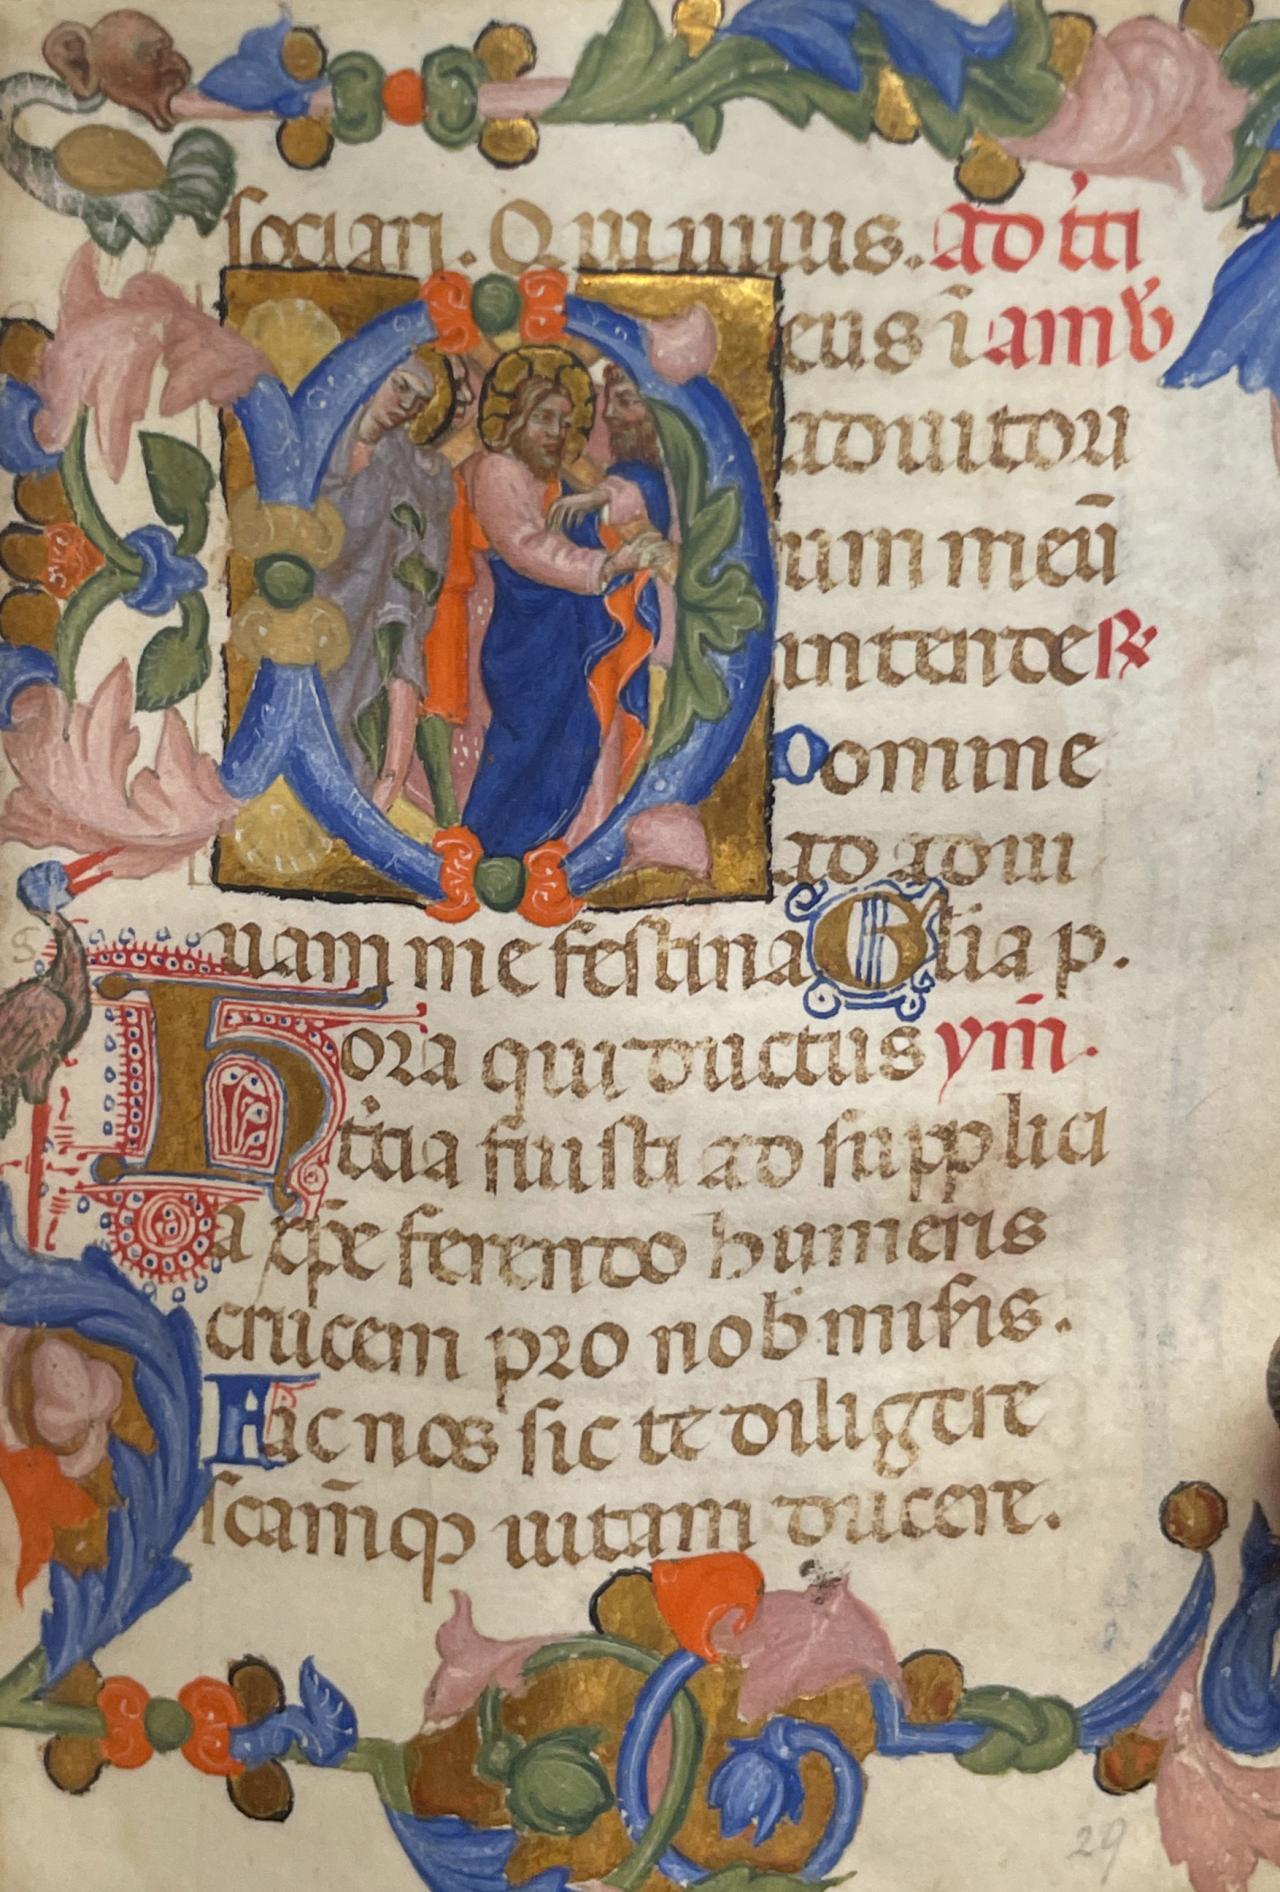 sociari. Qui uiuus. ad t̄ci
Deus ī amb̄
adiutori
um meū
intende ℟
Domine
ad adiu
uandum me festina Gl̄ia p.
Hora qui ductus ym̄.
t̄cia fuisti ad supplici
a xp̄e ferendo humeris
crucem pro nob miſis.
Fac nos sic te diligere
scam̄q uitam ducere.
29